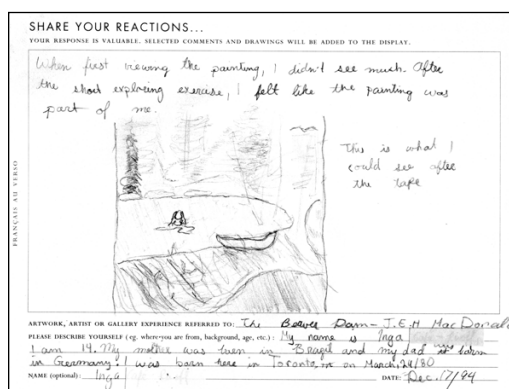 SHARE YOUR REACTIONS...
YOUR RESPONSE IS VALUABLE. SELECTED COMMENTS AND DRAWINGS WILL BE ADDED TO THE DISPLAY.
When first viewing the painting, I didn't see much. After
the short exploring exercise, I felt like the painting was
part of me.
This is what I
could see after
the tape
FRANÇAIS AU VERSO
ARTWORK, ARTIST OR GALLERY EXPERIENCE REFERRED TO: The Beaver Dam - J.E.H MacDonald
PLEASE DESCRIBE YOURSELF (eg. where you are from, background, age, etc.): My name is Inga
I am 14. My mother was born in Brazil and my dad is born
in Germany. I was born here in Toronto, on March, 29/80
NAME (optional): Inga DATE: Dec. 17/94